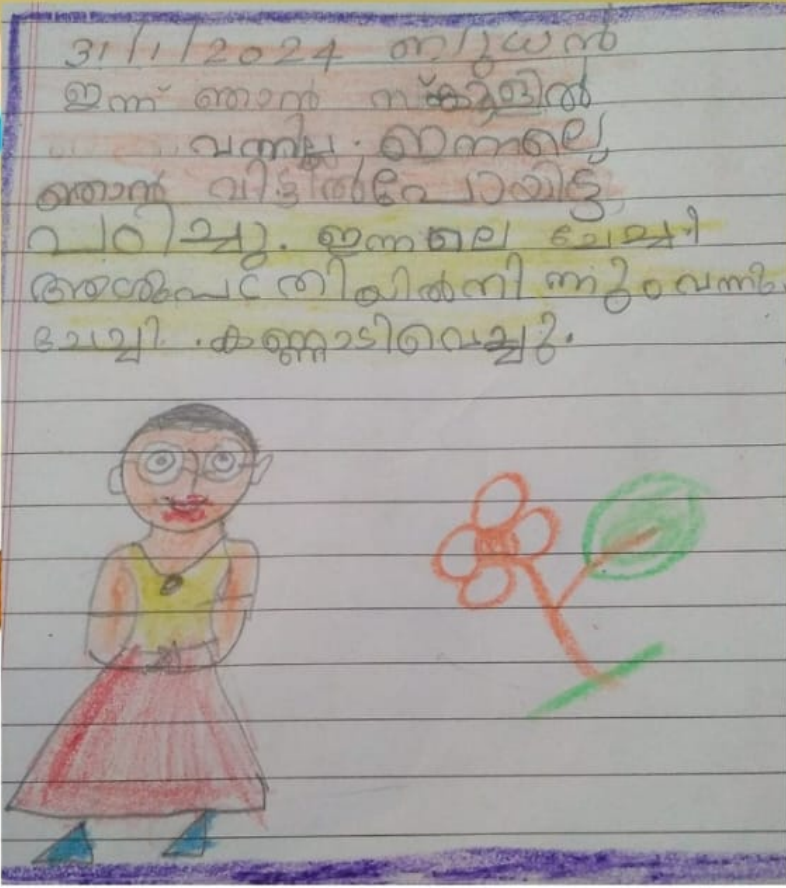 31/1/2024 ബുധൻ
ഇന്ന് ഞാൻ സ്കൂളിൽ
വന്നില്ല. ഇന്നലെ
ഞാൻ വീട്ടിൽപോയിട്ട്
പഠിച്ചു. ഇന്നലെ ചേച്ചി
വന്നു
ചേച്ചി. കണ്ണാടിവെച്ചു.